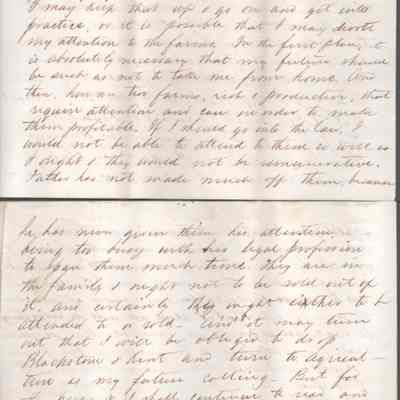 I may keep that up & go on and get into
practice, or it is possible that I may devote
my attention to the farms. In the first place, it
is absolutely necessary that my future should
be such as not to take me from home. And
then, here are two farms, rich & productive, that
require attention and care in order to make
them profitable. If I should go into the law, I
would not be able to attend to these as well as
I ought & they would not be remunerative.
Father has not made much off them, because
he has never given them his attention,
being too busy with his legal profession
to spare them much time. They are in
the family & ought not to be sold out of
it, and certainly they ought either to be
attended to or sold - And it may turn
out that I will be obliged to drop
Blackstone & Kent and turn to agricul-
ture as my future calling - But for
I shall continue to read and